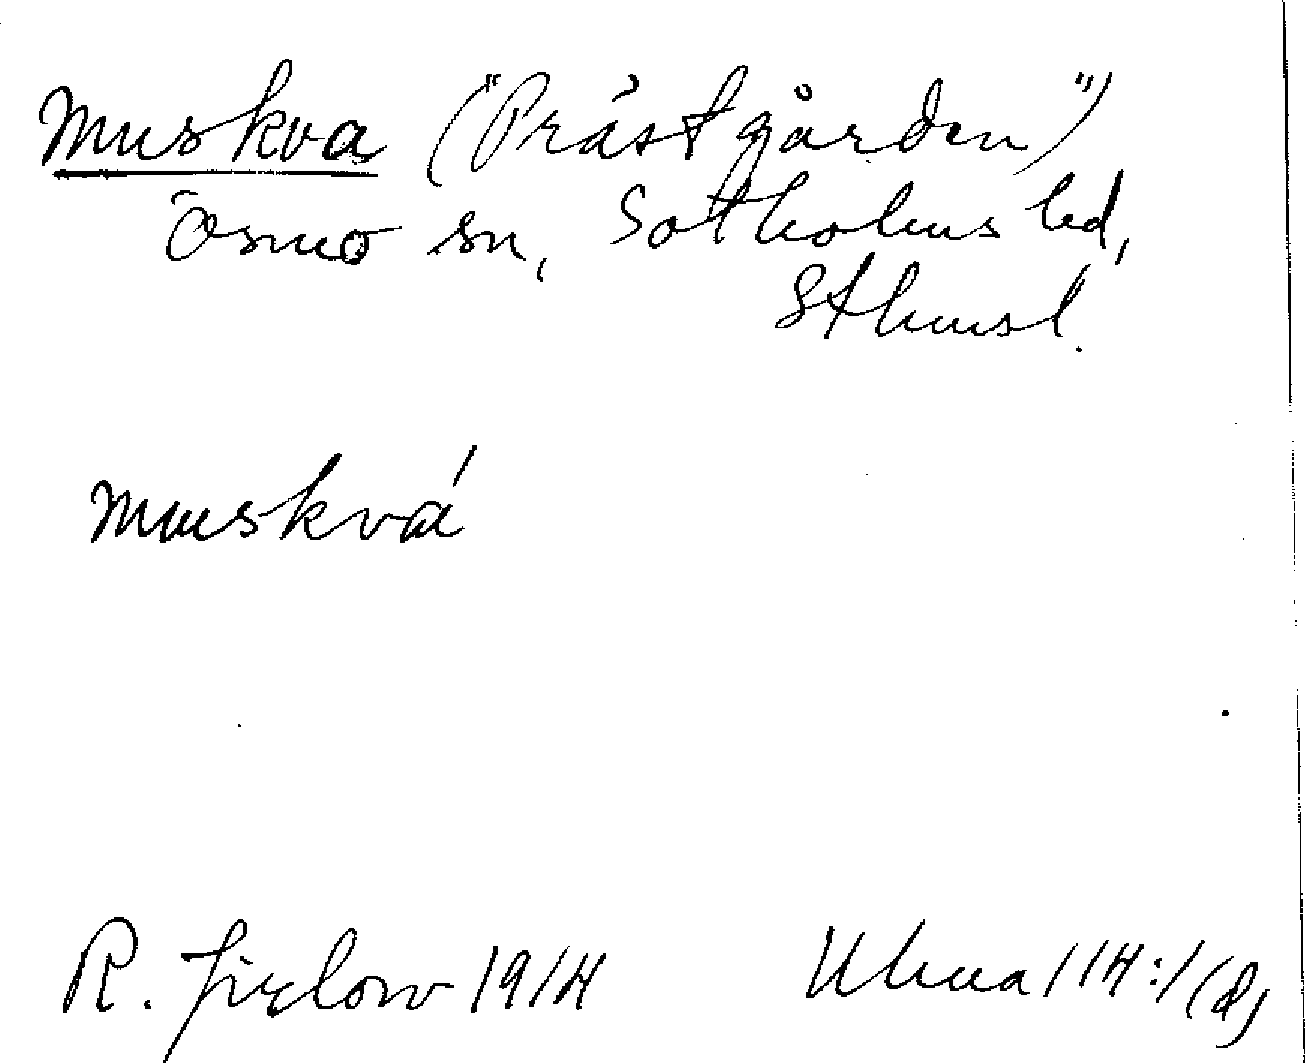 Muskva ("Prästgården")
Ösmo sn, Sotholms hd,
Sthmsl.
muskvá
R. Jirlow 1914
114:1(d)